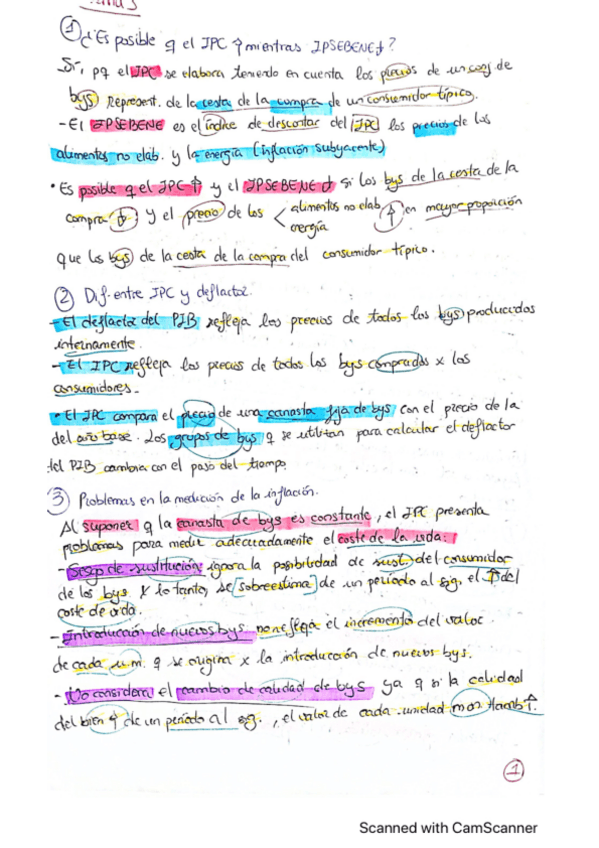 ① ¿Es posible q el IPC ↑ mientras IPSEBENE ↓?
Sí, pq el IPC se elabora teniendo en cuenta los precios de un conj de
bys Represent. de la cesta de la compra de un consumidor típico.
- El IPSEBENE es el índice de descontar del IPC los precios de los
alimentos no elab. y la energía (inflación subyacente)
• Es posible q el IPC ↑ y el IPSEBENE ↓ si los bys de la cesta de la
compra ↓ y el precio de los < alimentos no elab ↑ en mayor proporción
energía
que los bys de la cesta de la compra del consumidor típico.
② Dif. entre IPC y deflactor.
- El deflactor del PIB refleja los precios de todos los bys producidos
internamente.
- El IPC refleja los precios de todos los bys comprados x los
consumidores.
• El IPC compara el precio de una canasta fija de bys con el precio de la
del año base. Los grupos de bys q se utilizan para calcular el deflactor
del PIB cambia con el paso del tiempo
③ Problemas en la medición de la inflación.
Al suponer q la canasta de bys es constante, el IPC presenta
problemas para medir adecuadamente el coste de la vida:
- Sesgo de sustitución ignora la posibilidad de sust. del consumidor
de los bys x lo tanto, se [sobreestima] de un período al sig, el ↑ del
coste de vida.
- Introducción de nuevos bys no refleja el incremento del valor
de cada u.m. q se origina x la introducción de nuevos bys.
- No considera el cambio de calidad de bys ya q si la calidad
del bien ↑ de un período al sig., el valor de cada unidad mon tamb ↑.
①
Scanned with CamScanner